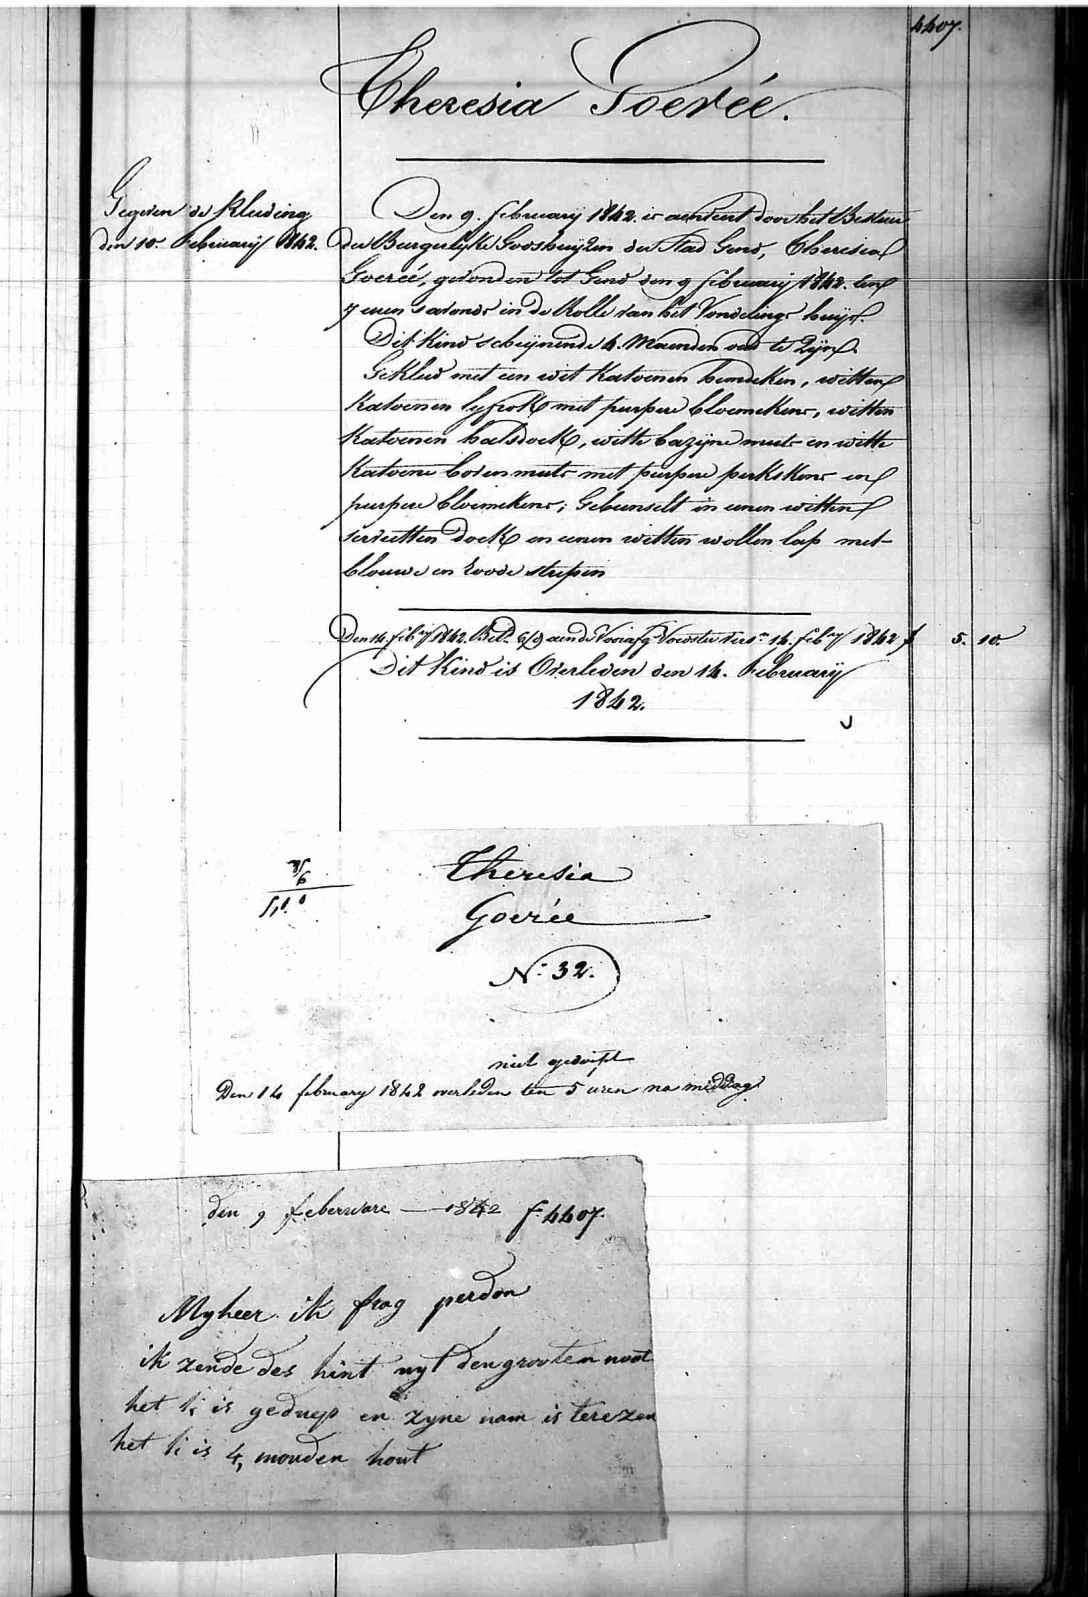 4407.
Theresia Goerée.
Gegeven de Kleeding
den 10. Februarij 1842.
Den 9. februarij 1842. is aenveert door het Bestuer
der Burgerlyke Godshuyzen der Stad Gend, Theresia
Goereé, gevonden tot Gend den 9 februarij 1842. ten
7 uren s'avonds in de Rolle van het Vondelings huys.
Dit Kind schynende 4. Maenden oud te Zyn.
Gekleed met een wit Katoenen hemdeken, witten
Katoenen lyfrok met purpere bloemekens, witten
Katoenen halsdoek, witte bazyne muts en witte
Katoene boven muts met purpere perkskens en
purpere bloemekens; Gebunselt in eenen witten
servietten doek en eenen witten wollen lap met
blouwe en roode strepen
Den 14 feb.ry 1842. Bet. aen de Voedster 14. feb.ry 1842 f 5. 10.
Dit Kind is Overleden den 14. Februarij
1842.
Theresia
Goerée
N.º 32.
niet gedoopt
Den 14 february 1842 overleden ten 5 uren na middag
den 9 feberware — 1842 f. 4407.
Myheer ik frag perdon
ik zende des kint uyt den grooten noot
het k is geduep en zyne nam is terezen
het k is 4, mouden hout